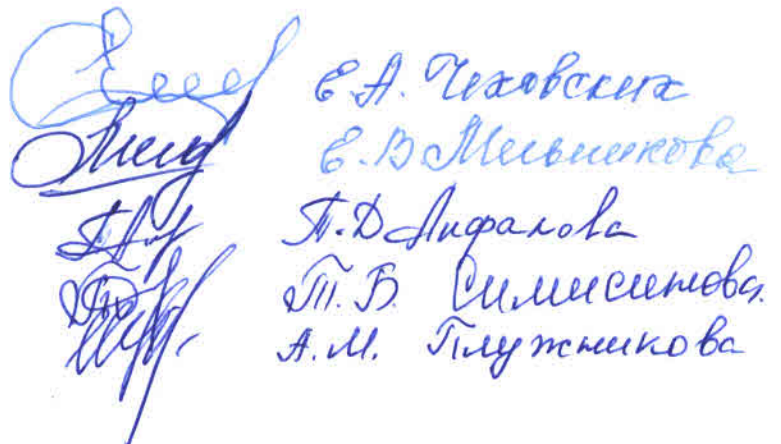 Е.А. Чеховских
Е.В Мельникова
П.Д Лифанова
Т.Б. Симисинова.
А.М. Плужникова